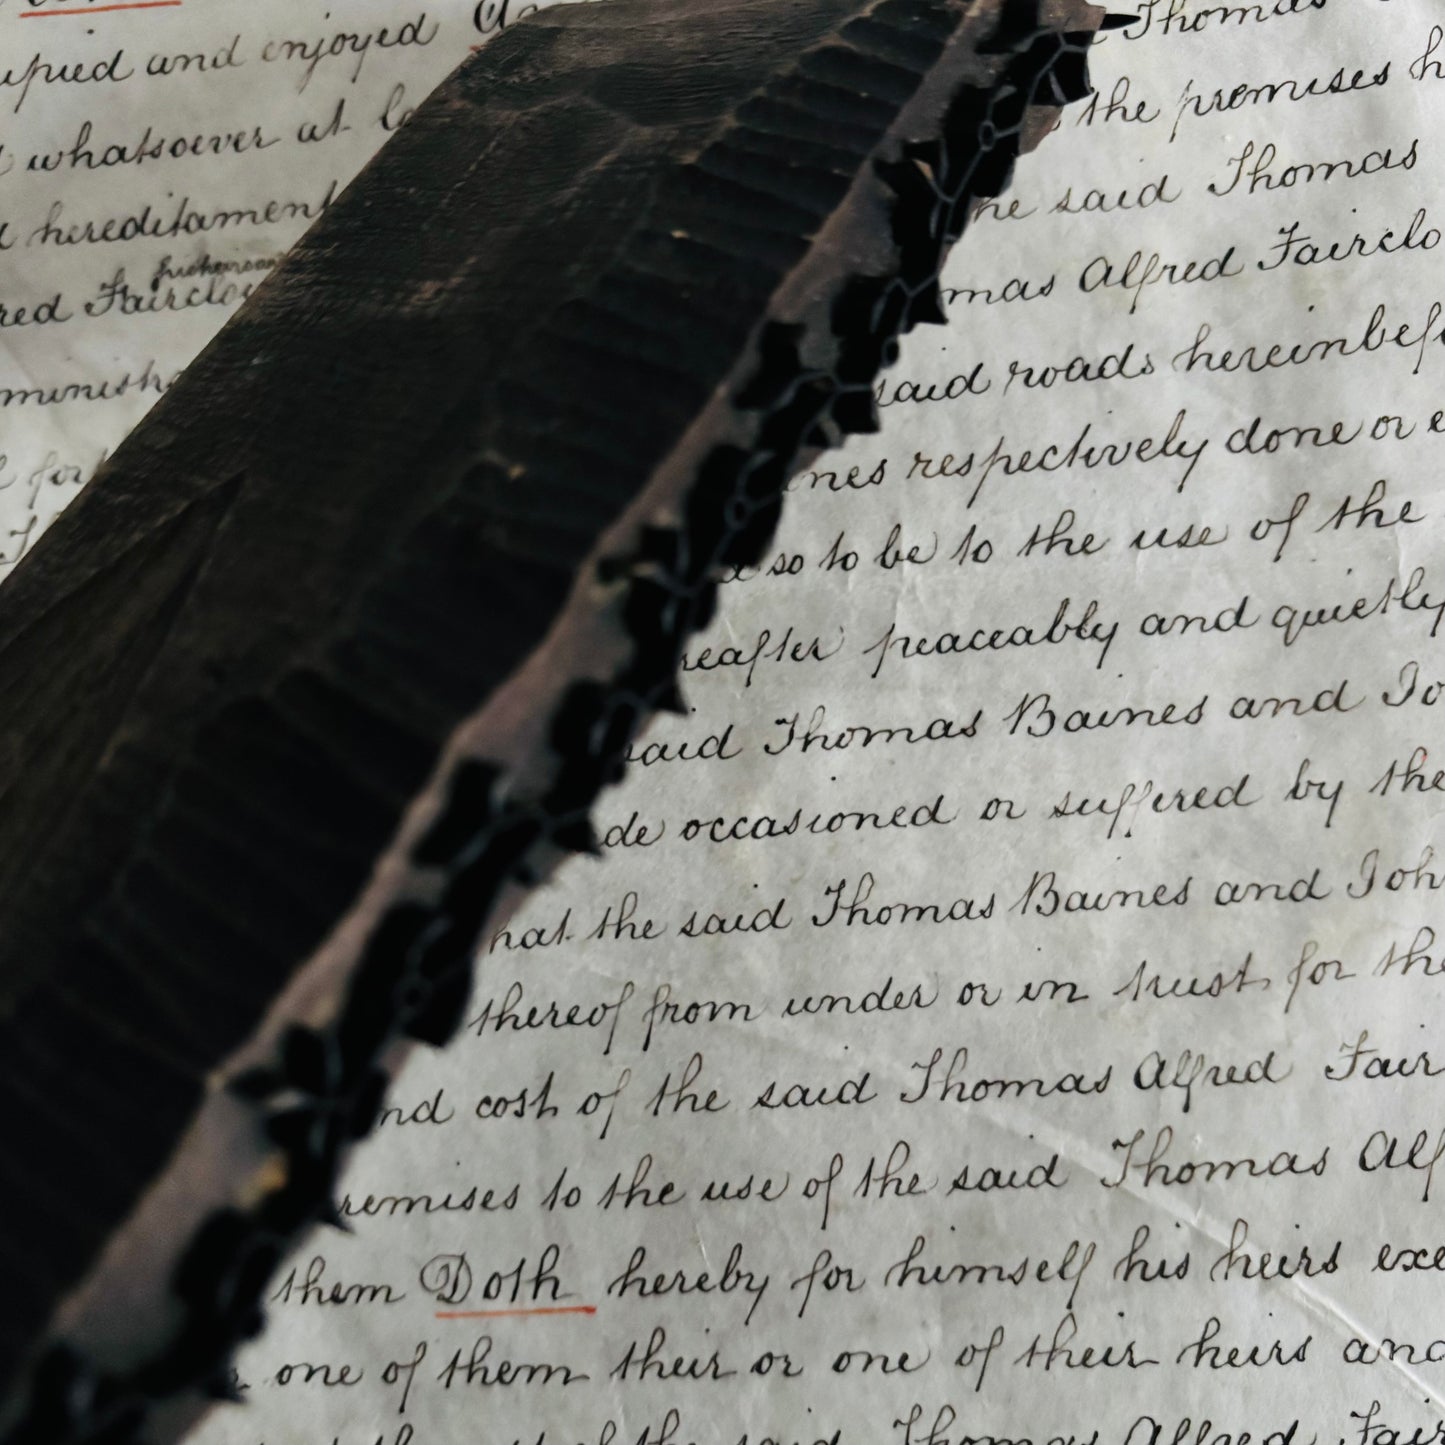 and enjoyed
whatsoever at
hereditament
red Fairclou
minist
for
Thomas
the premises h
he said Thomas
mas Alfred Fairclo
said roads hereinbefo
mes respectively done or e
so to be to the use of the
reafter peaceably and quietly
said Thomas Baines and Jo
de occasioned or suffered by the
hat the said Thomas Baines and Joh
thereof from under or in trust for the
nd cost of the said Thomas Alfred Fair
remises to the use of the said Thomas Alf
them Doth hereby for himself his heirs exe
one of them their or one of their heirs and
the said Thomas Alfred Fair